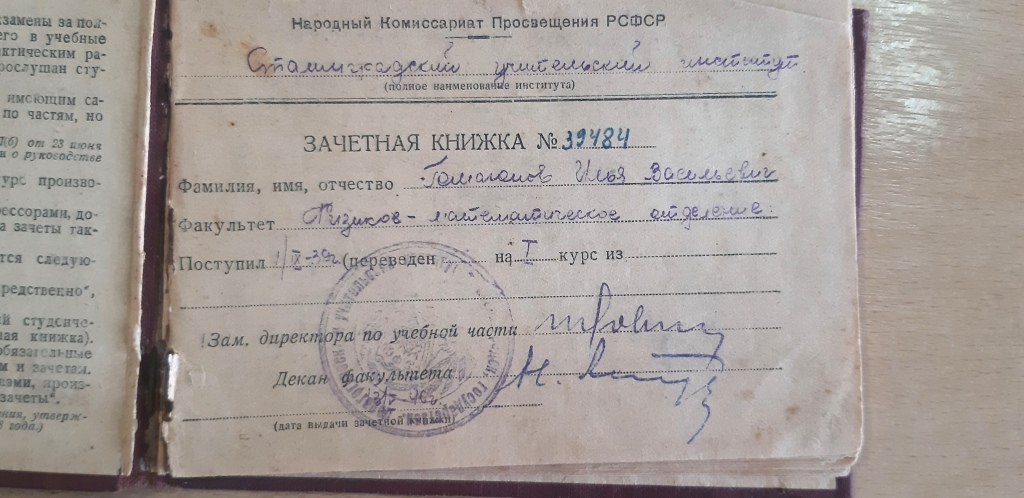 кзамены за пол-
его в учебные
ктическим ра-
рослушан сту-
имеющим са-
по частям, но
(б) от 23 июня
и о руководстве
урс произво-
ессорами, до-
а зачеты так-
тся следую-
редственно",
й студенче-
ная книжка).
обязательные
м и зачетам.
вами, произ-
зачеты".
ения, утверж-
8 года.)
Народный Комиссариат Просвещения РСФСР
Сталинградский учительский институт
(полное наименование института)
ЗАЧЕТНАЯ КНИЖКА № 39484
Фамилия, имя, отчество Илья Васильевич
Факультет Физико-математическое отделение
Поступил 1/IX-39г (переведен на I курс из
Зам. директора по учебной части
Декан факультета
(дата выдачи зачетной книжки)